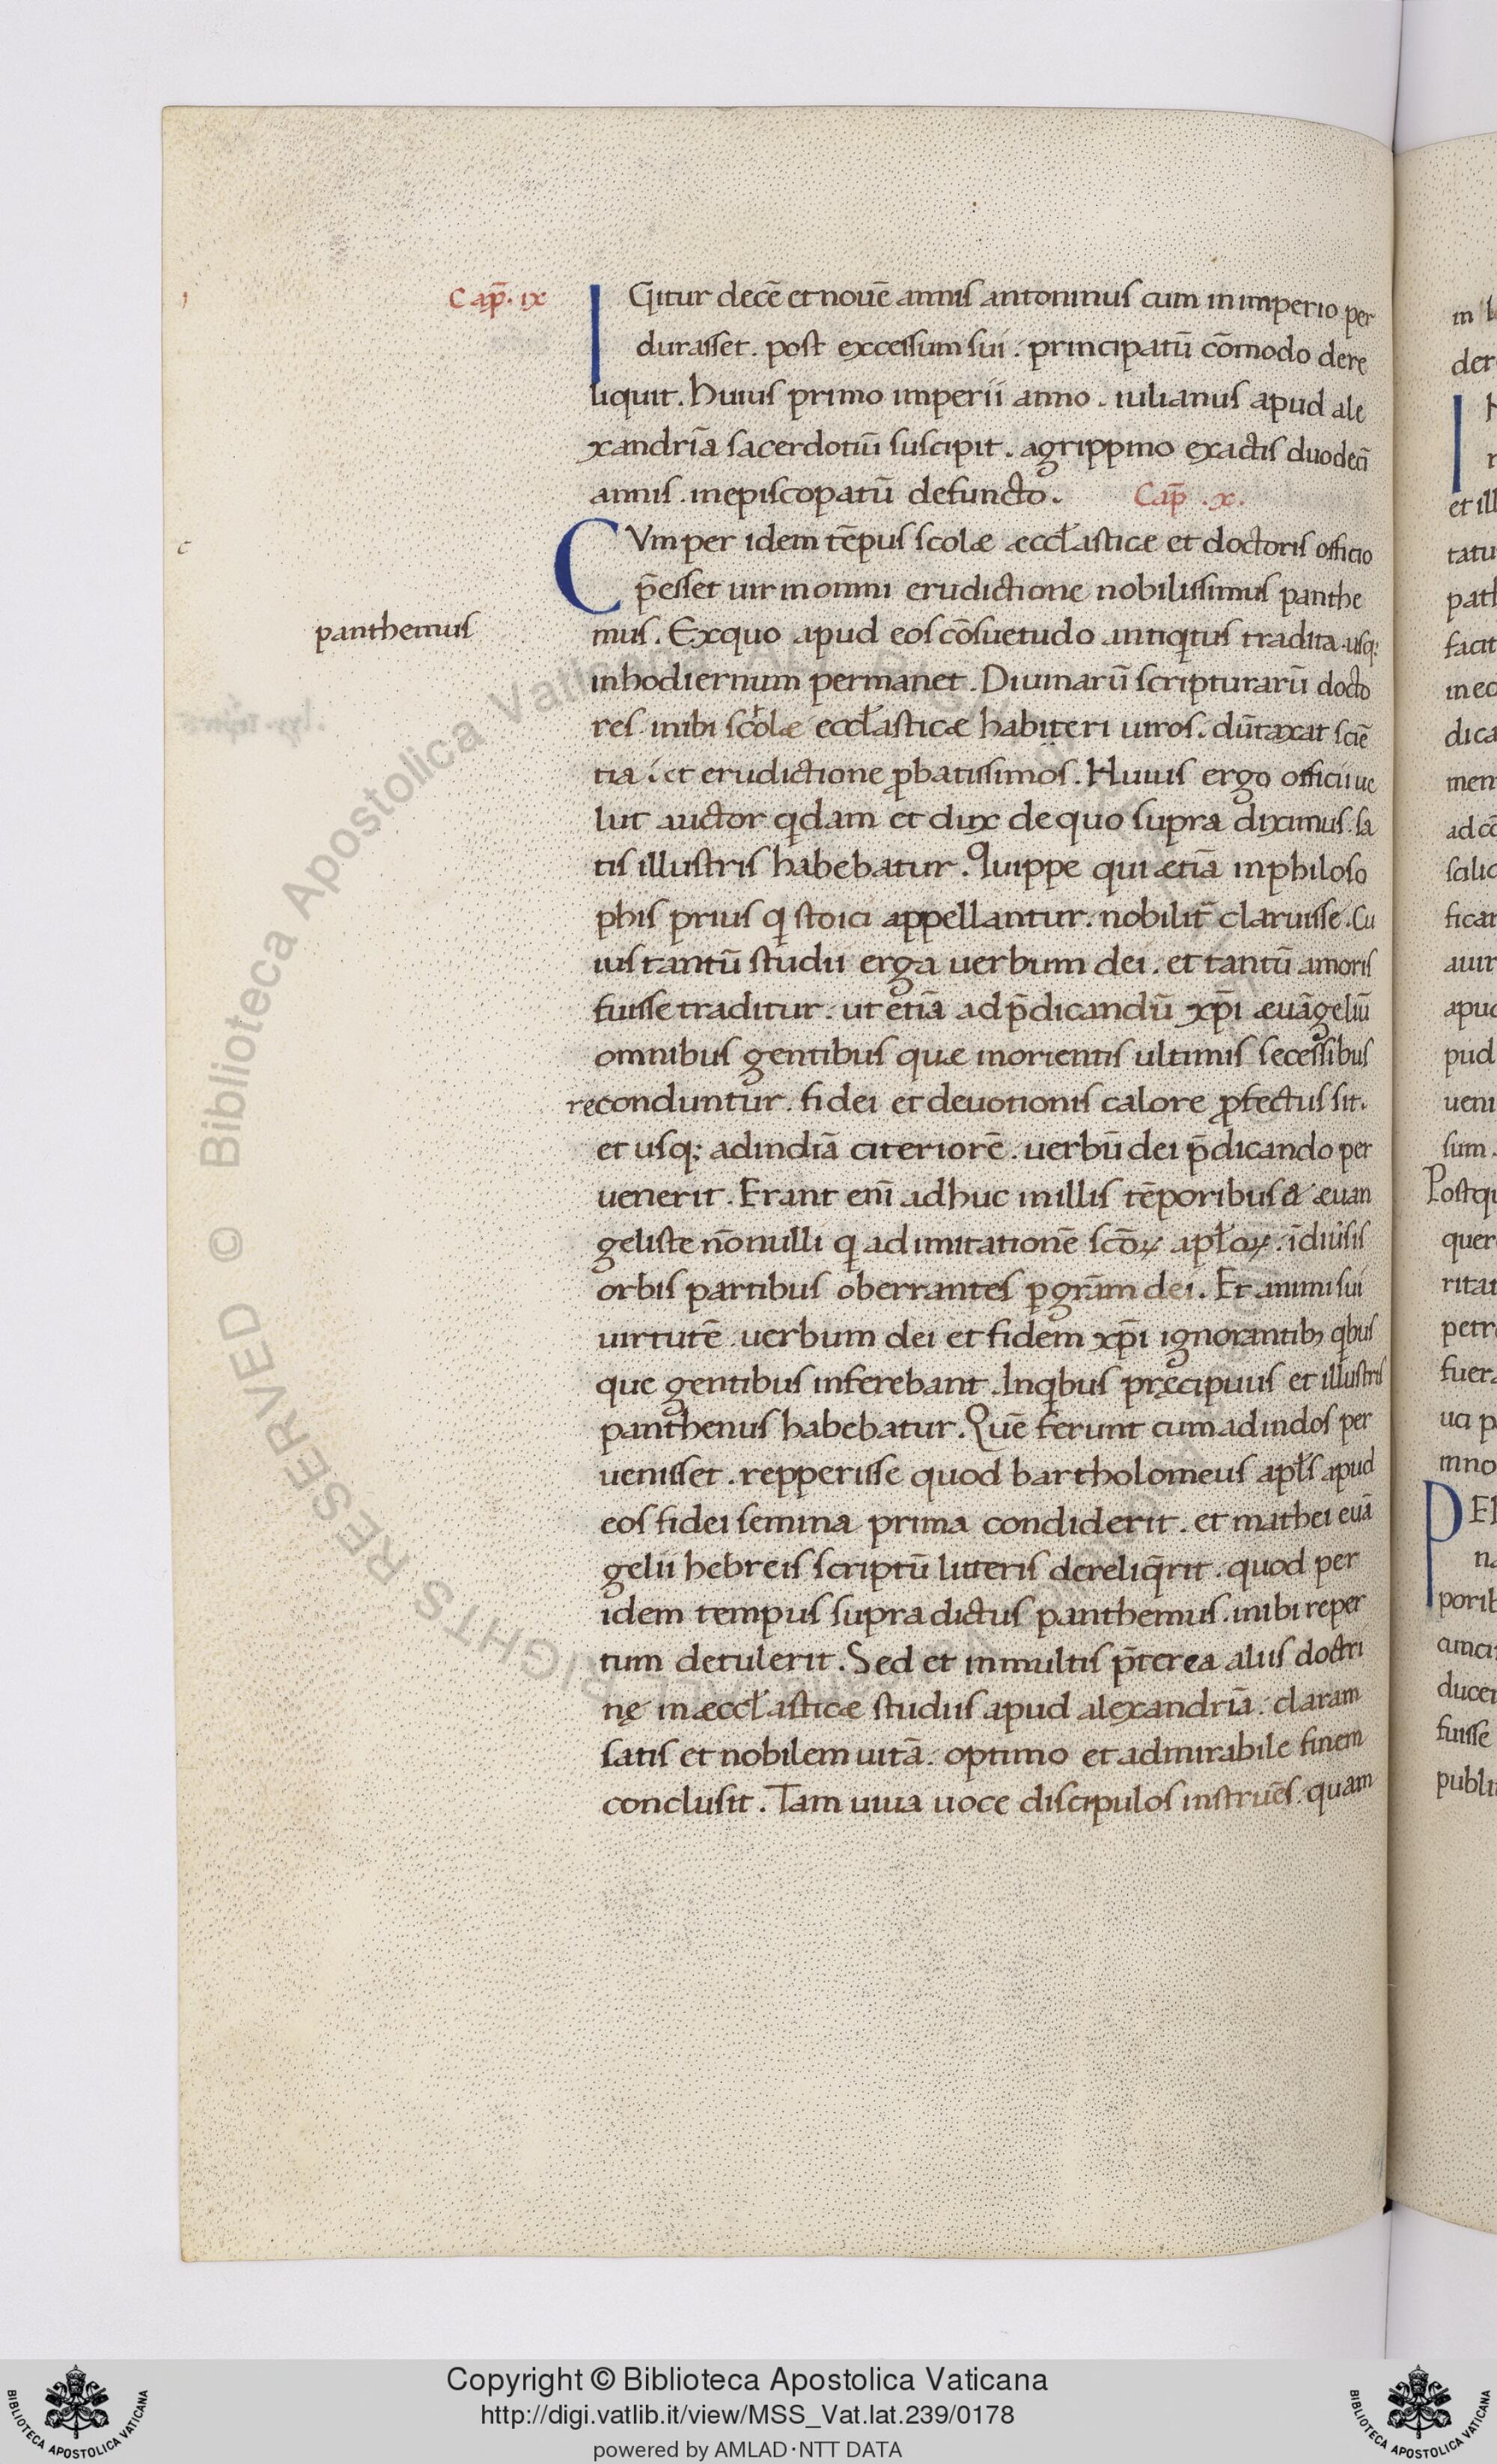 Cap̄. ix
IGitur decē et nouē annis antoninus cum in imperio per
durasset. post excessum sui. principatū cōmodo dere
liquit. huius primo imperii anno. iulianus apud ale
xandriā sacerdotiū suscipit. agrippino exactis duodeci̅
annis. in episcopatū defuncto. Cap̄ .x.
CVm per idem tēpus scolæ æccl'asticæ et doctoris officio
p̄esset uir in omni eruditione nobilissimus panthe
panthemus
mus. Ex quo apud eos cōsuetudo antiqitus tradita. usq;
in hodiernum permanet. Diuinarū scripturarū docto
res. inibi scolæ eccl'asticæ haberi uiros. dūtaxat sciē
tia. et eruditione ꝓbatissimos. Huius ergo officii ue
lut auctor qidam et dux de quo supra diximus. sa
tis illustris habebatur. Quippe qui ætiā in philoso
phis prius qi stoici appellantur. nobilit̄ claruisse. Cu
ius tantū studii erga uerbum dei. et tantū amoris
fuisse traditur. ut etiā ad p̄dicandū xp̄i æuāgeliū
omnibus gentibus quæ in orientis ultimis secessibus
reconduntur. fidei et deuotionis calore ꝓfectus sit.
et usq; ad indiā citeriorē. uerbū dei p̄dicando per
uenerit. Erant eni̅ adhuc in illis tēporibus & æuan
geliste nōnulli qi ad imitationē scōꝝ apl'oꝝ. i̅ diu'sis
orbis partibus oberrantes ꝑ grām dei. Et animi sui
uirtutē uerbum dei et fidem xp̄i ignorantibꝫ qibus
que gentibus inferebant. In qibus pręcipuus et illustris
panthenus habebatur. Quē ferunt cum ad indos per
uenisset. repperisse quod bartholomeus apl's apud
eos fidei semina prima condiderit. et mathei euā
gelii hebreis scriptū litteris dereliq̄rit. quod per
idem tempus supra dictus panthemus. inibi reper
tum detulerit. Sed et in multis p̄terea aliis doctri
nę in æccl'asticæ studiis apud alexandriā. claram
satis et nobilem uitā. optimo et admirabile finem
conclusit. Tam uiua uoce discipulos instruēs. quam
Copyright © Biblioteca Apostolica Vaticana
http://digi.vatlib.it/view/MSS_Vat.lat.239/0178
powered by AMLAD·NTT DATA